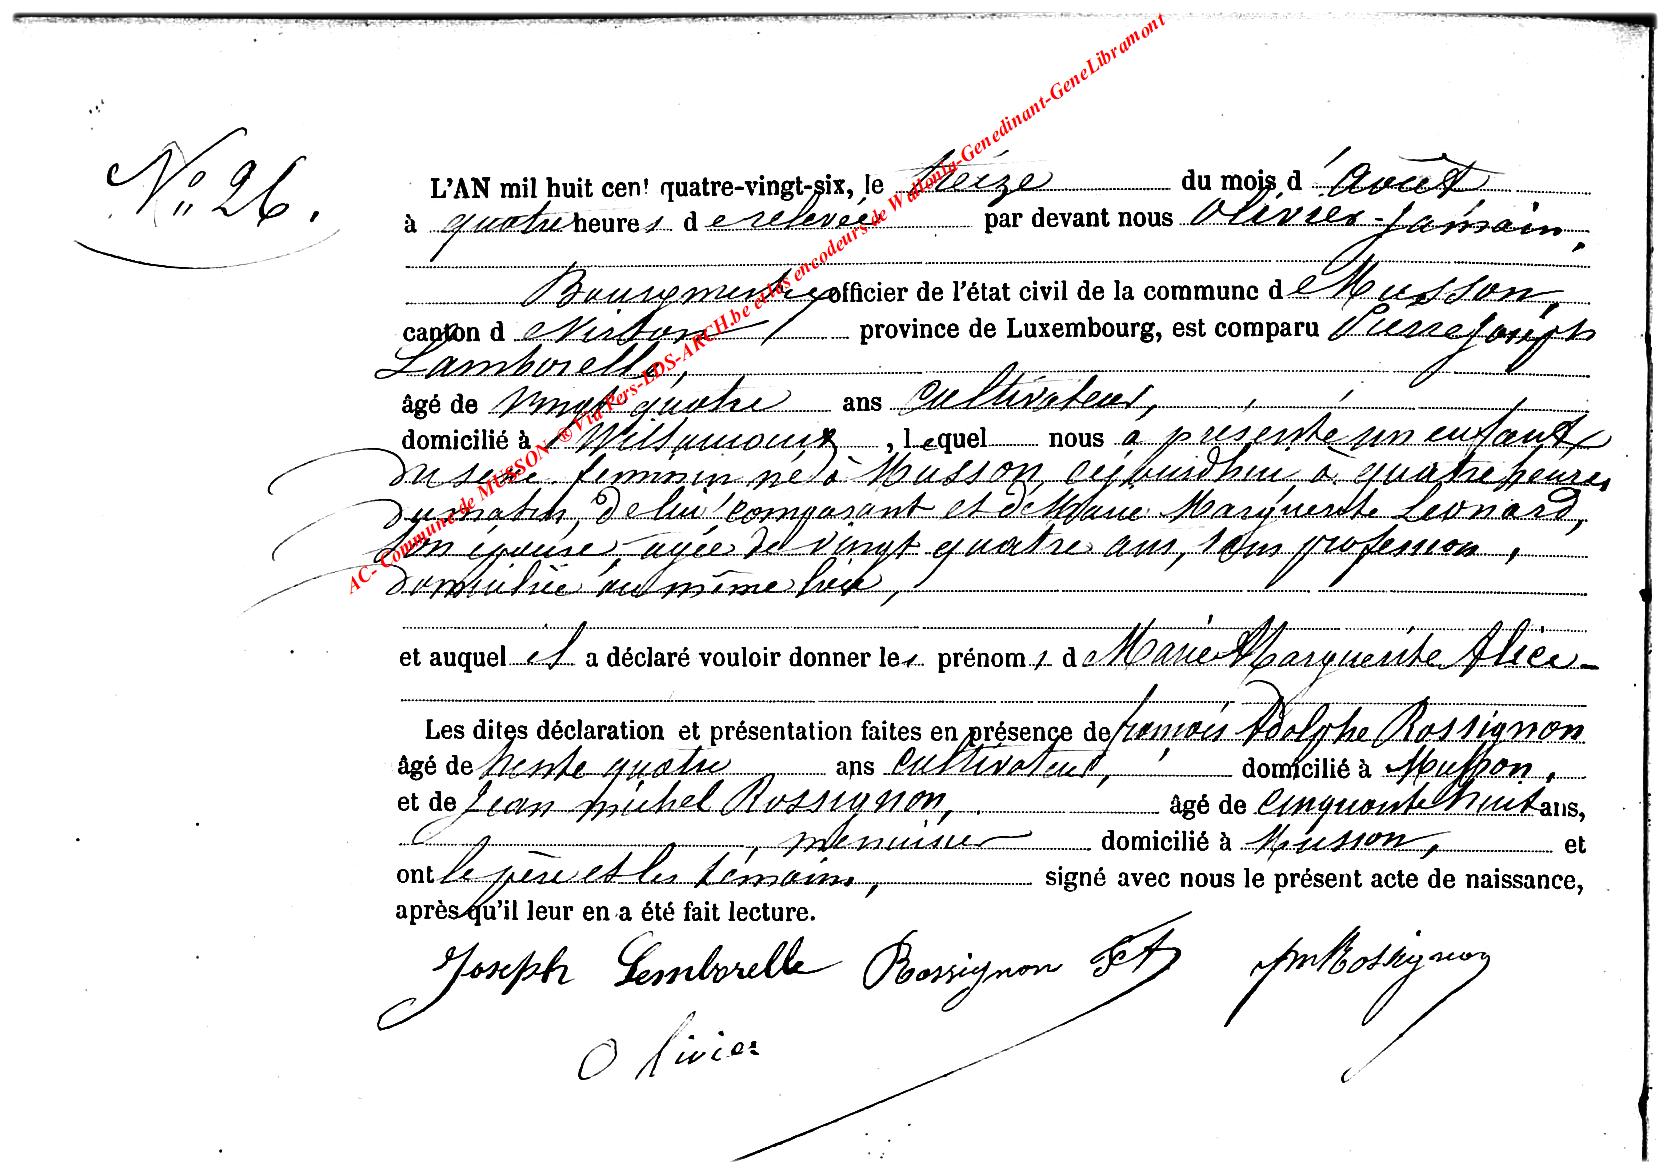 N° 26.
L'AN mil huit cent quatre-vingt-six, le treize du mois d'Août
à quatre heures de relevée par devant nous Olivier - Jamain,
Bourgmestre officier de l'état civil de la commune de Musson,
canton de Virton province de Luxembourg, est comparu Pierre Joseph
Lamborelle,
âgé de vingt quatre ans cultivateur,
domicilié à Willancourt, lequel nous a présenté un enfant
du sexe féminin né à Musson, cejourdhui à quatre heures
du matin, de lui comparant et de Marie Marguerite Léonard,
son épouse, agée de vingt quatre ans, sans profession,
domiciliée au même lieu,
et auquel il a déclaré vouloir donner les prénoms de Marie Marguerite Alice -
Les dites déclaration et présentation faites en présence de françois Adolphe Rossignon
âgé de trente quatre ans cultivateur, domicilié à Musson,
et de Jean michel Rossignon, âgé de cinquante huit ans,
menuisier domicilié à Musson, et
ont le père et les témoins, signé avec nous le présent acte de naissance,
après qu'il leur en a été fait lecture.
Joseph Lemborelle Rossignon FA JM Rossignon
Olivier
AC- Commune de MUSSON ® Via Pers-LDS-ARCH.be et les encodeurs de Wallonia-Genedinant-GeneLibramont